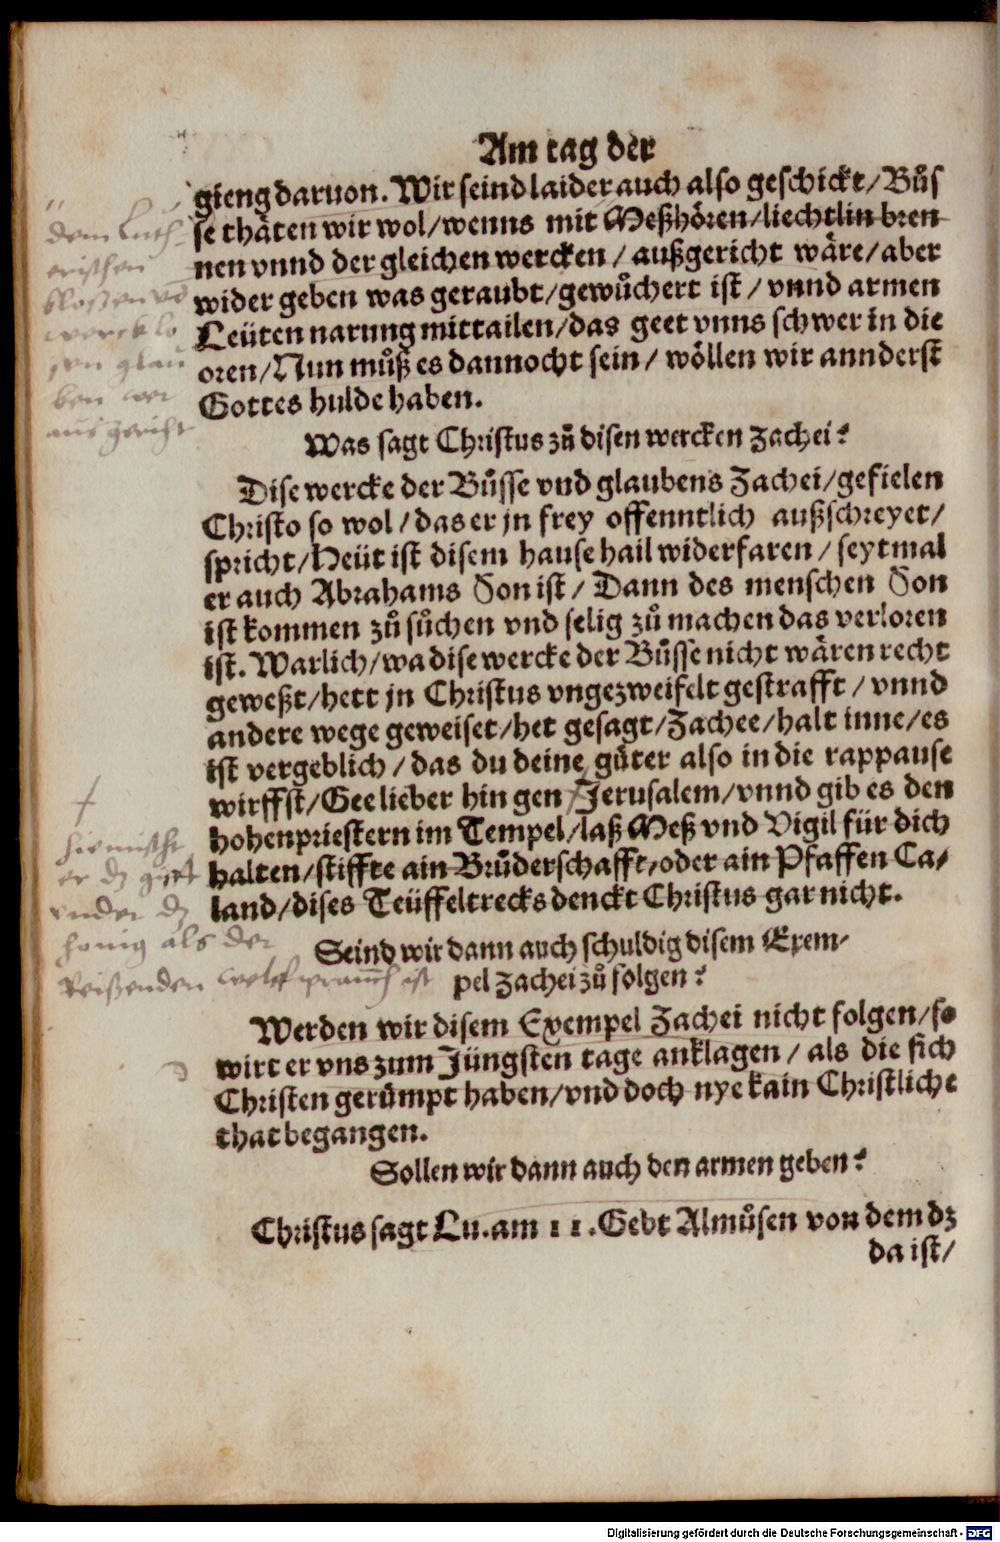 Am tag der
gieng daruon. Wir seind laider auch also geschickt/ Bůs
se thäten wir wol/ wenns mit Meßhören/ liechtlin bren
nen vnnd der gleichen wercken/ außgericht wäre/ aber
wider geben was geraubt/ gewůchert ist/ vnnd armen
Leüten narung mittailen/ das geet vnns schwer in die
oren/ Nun můß es dannocht sein/ wöllen wir annderst
Gottes hulde haben.
dem Luth-
erischen
bloßen vn
wercklo
sen glau
ben wer
aus gericht
Was sagt Christus zů disen wercken Zachei?
Dise wercke der Bůsse vnd glaubens Zachei/ gefielen
Christo so wol/ das er jn frey offenntlich außschreyet/
spricht/ Heüt ist disem hause hail widerfaren/ seytmal
er auch Abrahams Son ist/ Dann des menschen Son
ist kommen zů sůchen vnd selig zů machen das verloren
ist. Warlich/ wa dise wercke der Bůsse nicht wären recht
geweßt/ hett jn Christus vngezweifelt gestrafft/ vnnd
andere wege geweiset/ het gesagt/ Zachee/ halt inne/ es
ist vergeblich/ das du deine gůter also in die rappause
wirffst/ Gee lieber hin gen Jerusalem/ vnnd gib es den
hohenpriestern im Tempel/ laß Meß vnd Vigil für dich
halten/ stiffte ain Brůderschafft/ oder ain Pfaffen Ca/
land/ dises Teüffeltrecks denckt Christus gar nicht.
hie mischt
er dz gift
vnder dz
honig als der
Reißenden wolff
Seind wir dann auch schuldig disem Exem/
pel Zachei zů folgen?
Werden wir disem Exempel Zachei nicht folgen/ so
wirt er vns zum Jüngsten tage anklagen/ als die sich
Christen gerůmpt haben/ vnd doch nye kain Christliche
that begangen.
Sollen wir dann auch den armen geben?
Christus sagt Lu. am 11. Gebt Almůsen von dem dz
da ist/
Digitalisierung gefördert durch die Deutsche Forschungsgemeinschaft - DFG